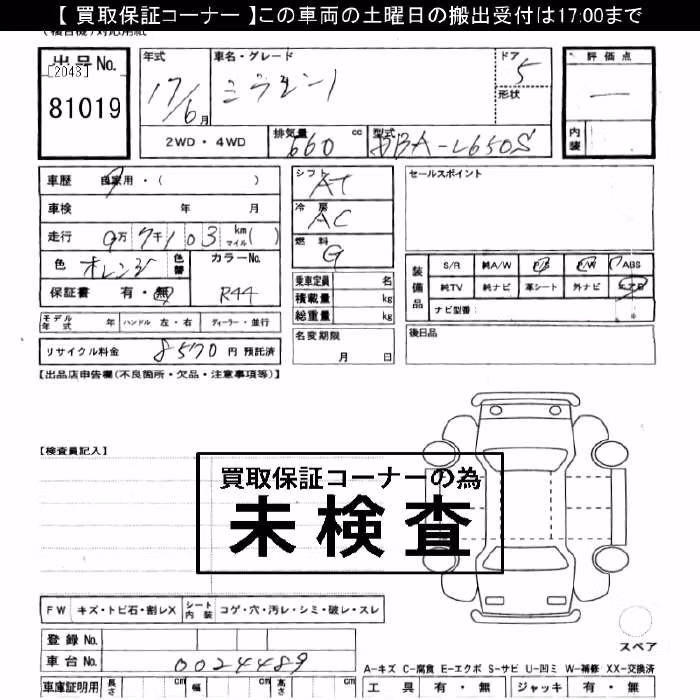 【 買取保証コーナー 】この車両の土曜日の搬出受付は17:00まで
出品No.
[2043]
81019
年式
17/6月
車名・グレード
ドア
5
形状
評価点
—
内装
2WD・4WD
排気量
660 cc
型式
DBA-L650S
車歴 自家用・( )
車検 年 月
走行 9万7千103 km マイル( )
色 オレンジ 色替
カラーNo.
R44
保証書 有・無
モデル年式 年 ハンドル 左・右 ディーラー・並行
リサイクル料金 8570 円 預託済
シフト
AT
冷房
AC
燃料
G
乗車定員 名
積載量 kg
総重量 kg
名変期限
月 日
セールスポイント
装備品
S/R 純A/W P/S P/W ABS
純TV 純ナビ 革シート 外ナビ エアB
ナビ型番:
後日品
【出品店申告欄(不良箇所・欠品・注意事項等)】
【検査員記入】
買取保証コーナーの為
未検査
FW キズ・トビ石・割レX シート内装 コゲ・穴・汚レ・シミ・破レ・スレ
登録No.
車台No. 0024489
車庫証明用 長さ cm 幅 cm 高さ cm
スペア
A-キズ C-腐食 E-エクボ S-サビ U-凹ミ W-補修 XX-交換済
工具 有・無 ジャッキ 有・無